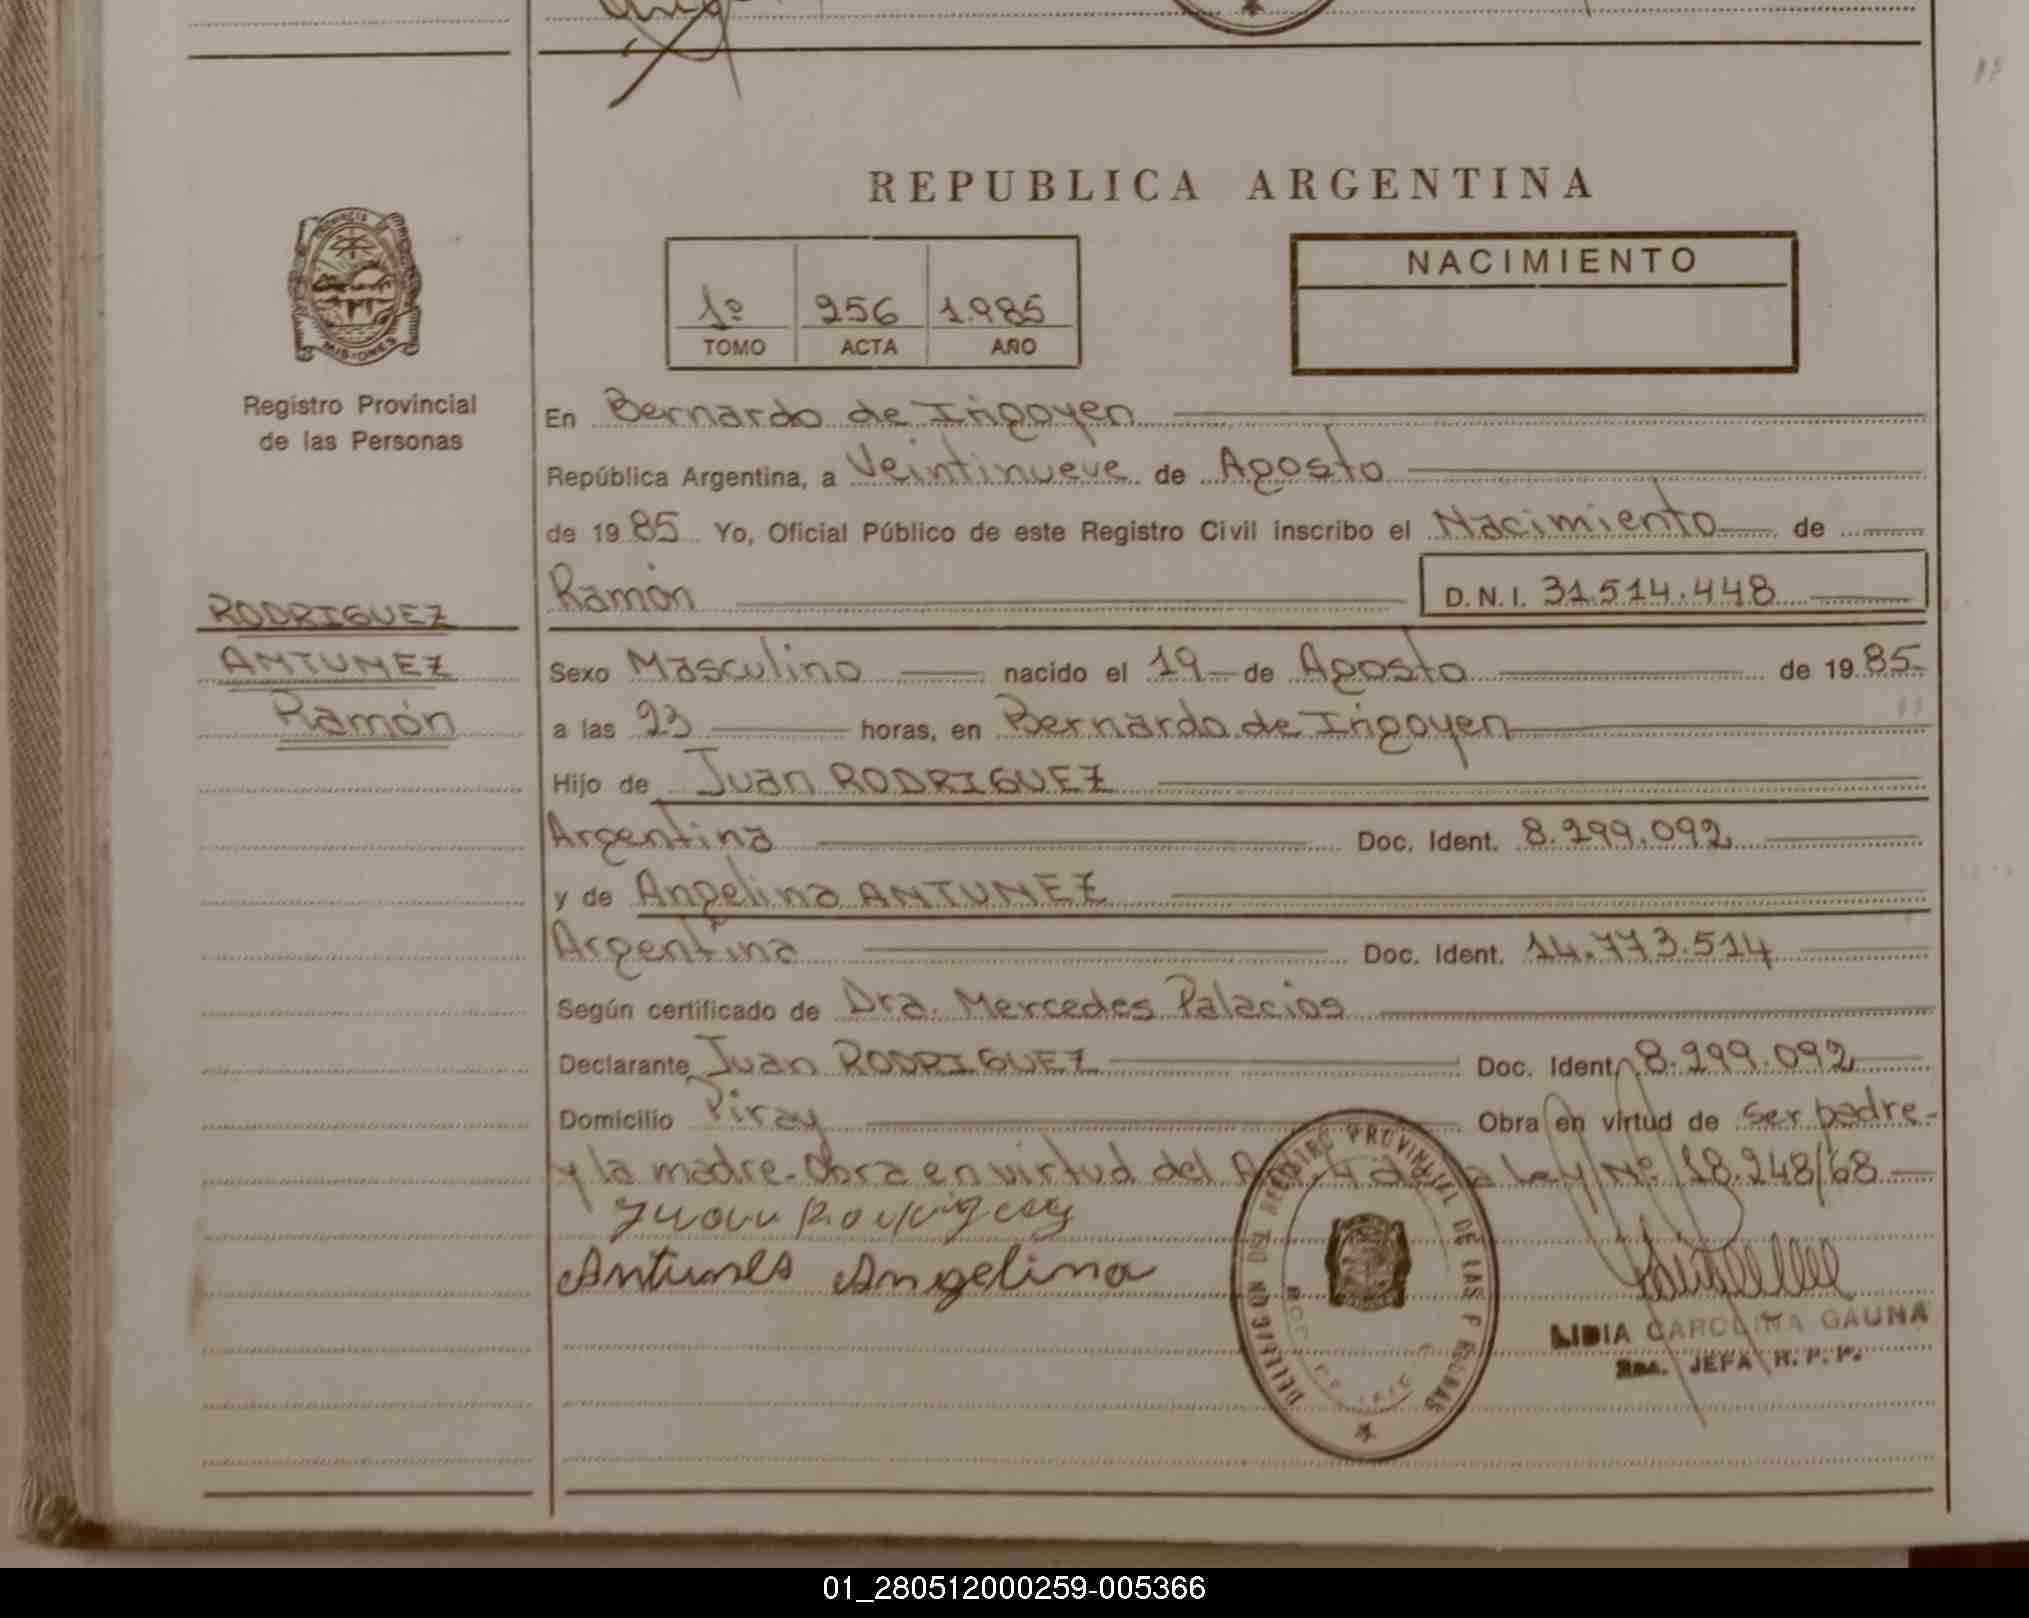 REPUBLICA ARGENTINA
PROVINCIA
MISIONES
Registro Provincial
de las Personas
1º 256 1.985
TOMO ACTA AÑO
NACIMIENTO
En Bernardo de Irigoyen
República Argentina, a Veintinueve de Agosto
de 1985 Yo, Oficial Público de este Registro Civil inscribo el Nacimiento de
Ramón D.N.I. 31.514.448
RODRIGUEZ
ANTUNEZ
Ramón
Sexo Masculino nacido el 19 de Agosto de 1985
a las 23 horas, en Bernardo de Irigoyen
Hijo de Juan RODRIGUEZ
Argentina Doc. Ident. 8.299.092
y de Angelina ANTUNEZ
Argentina Doc. Ident. 14.773.514
Según certificado de Dra. Mercedes Palacios
Declarante Juan RODRIGUEZ Doc. Ident. 8.299.092
Domicilio Piray Obra en virtud de ser padre-
y la madre-Obra en virtud del Ley Nº 18.248/68
Juan Rodriguez
Antunes Angelina
DELEGACION DEL REGISTRO PROVINCIAL DE LAS PERSONAS
LIDIA CAROLINA GAUNA
JEFA R. P. P.
01_280512000259-005366